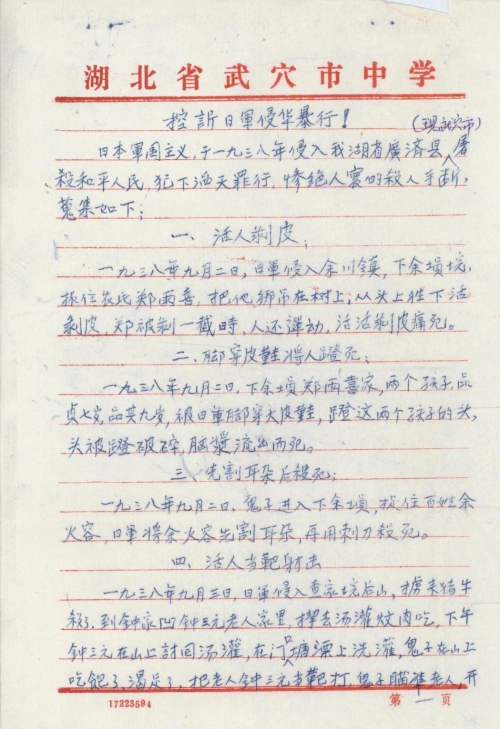 湖北省武穴市中学
控訴日軍侵华暴行!
(现武穴市)
日本軍国主义,于一九三八年侵入我湖省廣济县屠
殺和平人民,犯下滔天罪行,惨绝人寰的殺人手断,
蒐集如下:
一、活人剥皮;
一九三八年九月二日,日軍侵入余川鎮,下余塤垸,
抓住农民郑雨喜,把他绑吊在树上,从头上往下活
剥皮,郑被剥一截時,人还運动,活活剥皮痛死。
二、脚穿皮鞋将人蹬死;
一九三八年九月二日,下余塤郑雨喜家,两个孩子,品
贞七岁,品其九岁,被日軍脚穿大皮鞋,蹬这两个孩子的头,
头被蹬破碎,脑漿流出而死。
三、先割耳朵后殺死;
一九三八年九月二日,鬼子进入下余塤,抓住百姓余
火容,日軍将余火容先割耳朵,再用刺刀殺死。
四、活人当靶射击
一九三八年九月三日,日軍侵入查家垸后山,掳来猪牛
殺了,到钟家凹钟三元老人家里,拏去汤灌炆肉吃,下午
钟三元在山上討回汤灌,在门口塘漂上洗灌,鬼子在山上
吃饱了,渴足了,把老人钟三元当靶打,鬼子瞄準老人,开
17223594
第一页